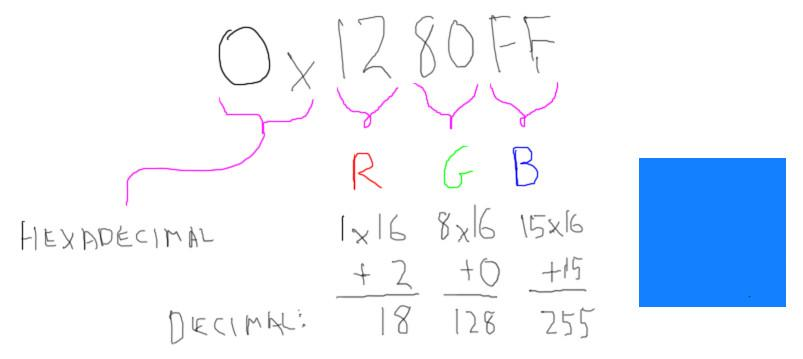 0x1280FF
R G B
HEXADECIMAL 1x16 8x16 15x16
+ 2 +0 +15
DECIMAL: 18 128 255